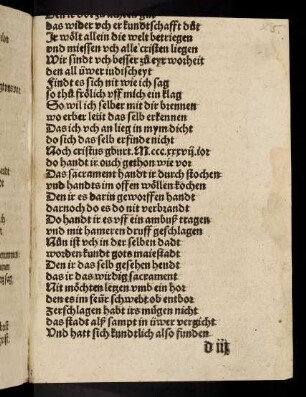 das wider vch er kundtschafft düt
Je wölt allein die welt betriegen
vnd miessen vch alle cristen liegen
Wir sindt vch besser zů eyr worheit
den all üwer iudischeyt
Findt es sich nit wie ich sag
so thů frölich vff mich ein klag
So wil ich selber mit dir brennen
wo erber leüt das selb erkennen
Das ich vch an lieg in mym dicht
do sich das selb erfinde nicht
Noch cristus gburt. M.ccc.xxxvij. for
do handt ir ouch gethon wie vor
Das sacrament handt ir durch stochen
vnd handts im offen wöllen kochen
Den ir es darin geworffen handt
darnoch do es do nit verbrandt
Do handt ir es vff ein ambuß tragen
vnd mit hameren druff geschlagen
Nůn ist vch in der selben dadt
worden kundt gots maiestadt
Den ir das selb gesehen hendt
das ir das wirdig sacrament
Nit möchten letzen vmb ein hor
den es im feür schwebt ob entbor
Zerschlagen habt irs mügen nicht
das stadt alß sampt in üwer vergicht
Vnd hatt sich kundtlich also finden
d iij